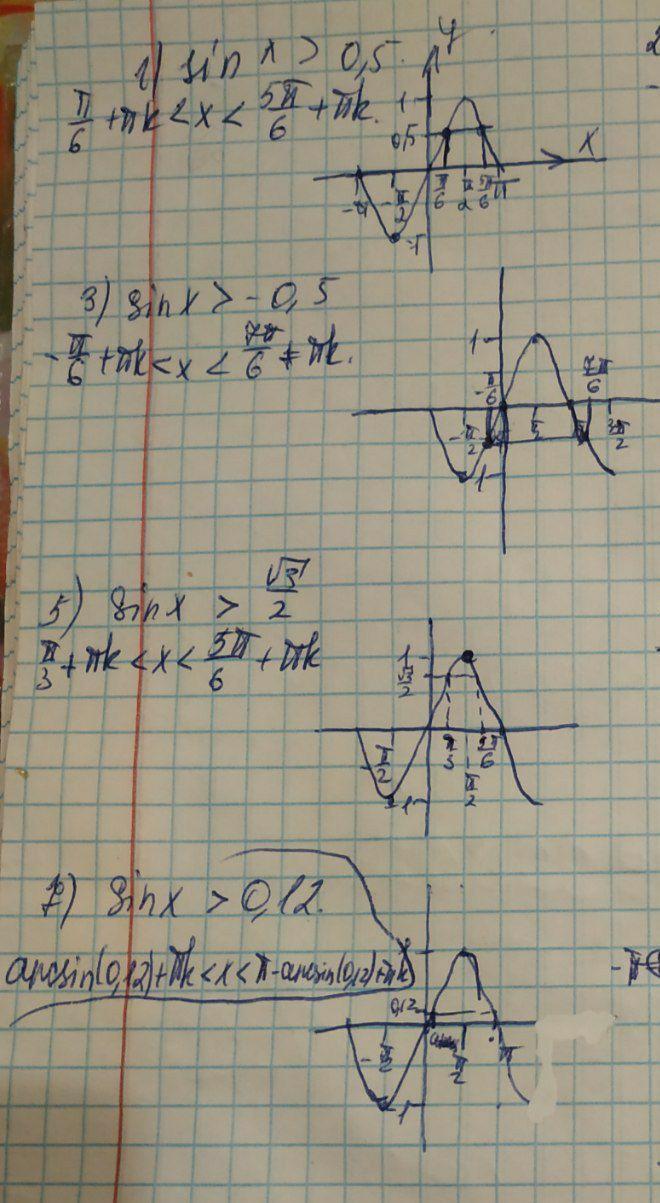 1) sin x > 0,5
π/6 + πk < x < 5π/6 + πk.
y
1
0,5
x
-π
-π/2
π/6
π/2
5π/6
π
-1
3) sin x > -0,5
-π/6 + πk < x < 7π/6 + πk.
1
-π/6
7π/6
-π/2
π/2
π
3π/2
-1
5) sin x > √3/2
π/3 + πk < x < 5π/6 + πk
1
√3/2
-π/2
π/3
5π/6
π/2
-1
7) sin x > 0,12.
arcsin(0,12) + πk < x < π - arcsin(0,12) + πk
0,12
-π/2
π/2
π
-1
2